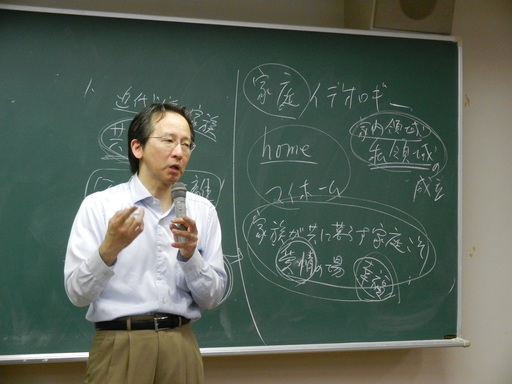 近代 家族
家庭イデオロギー
home
マイホーム
家内領域
私領域の
成立
家族が共に暮す家庭が
愛情の場
幸福